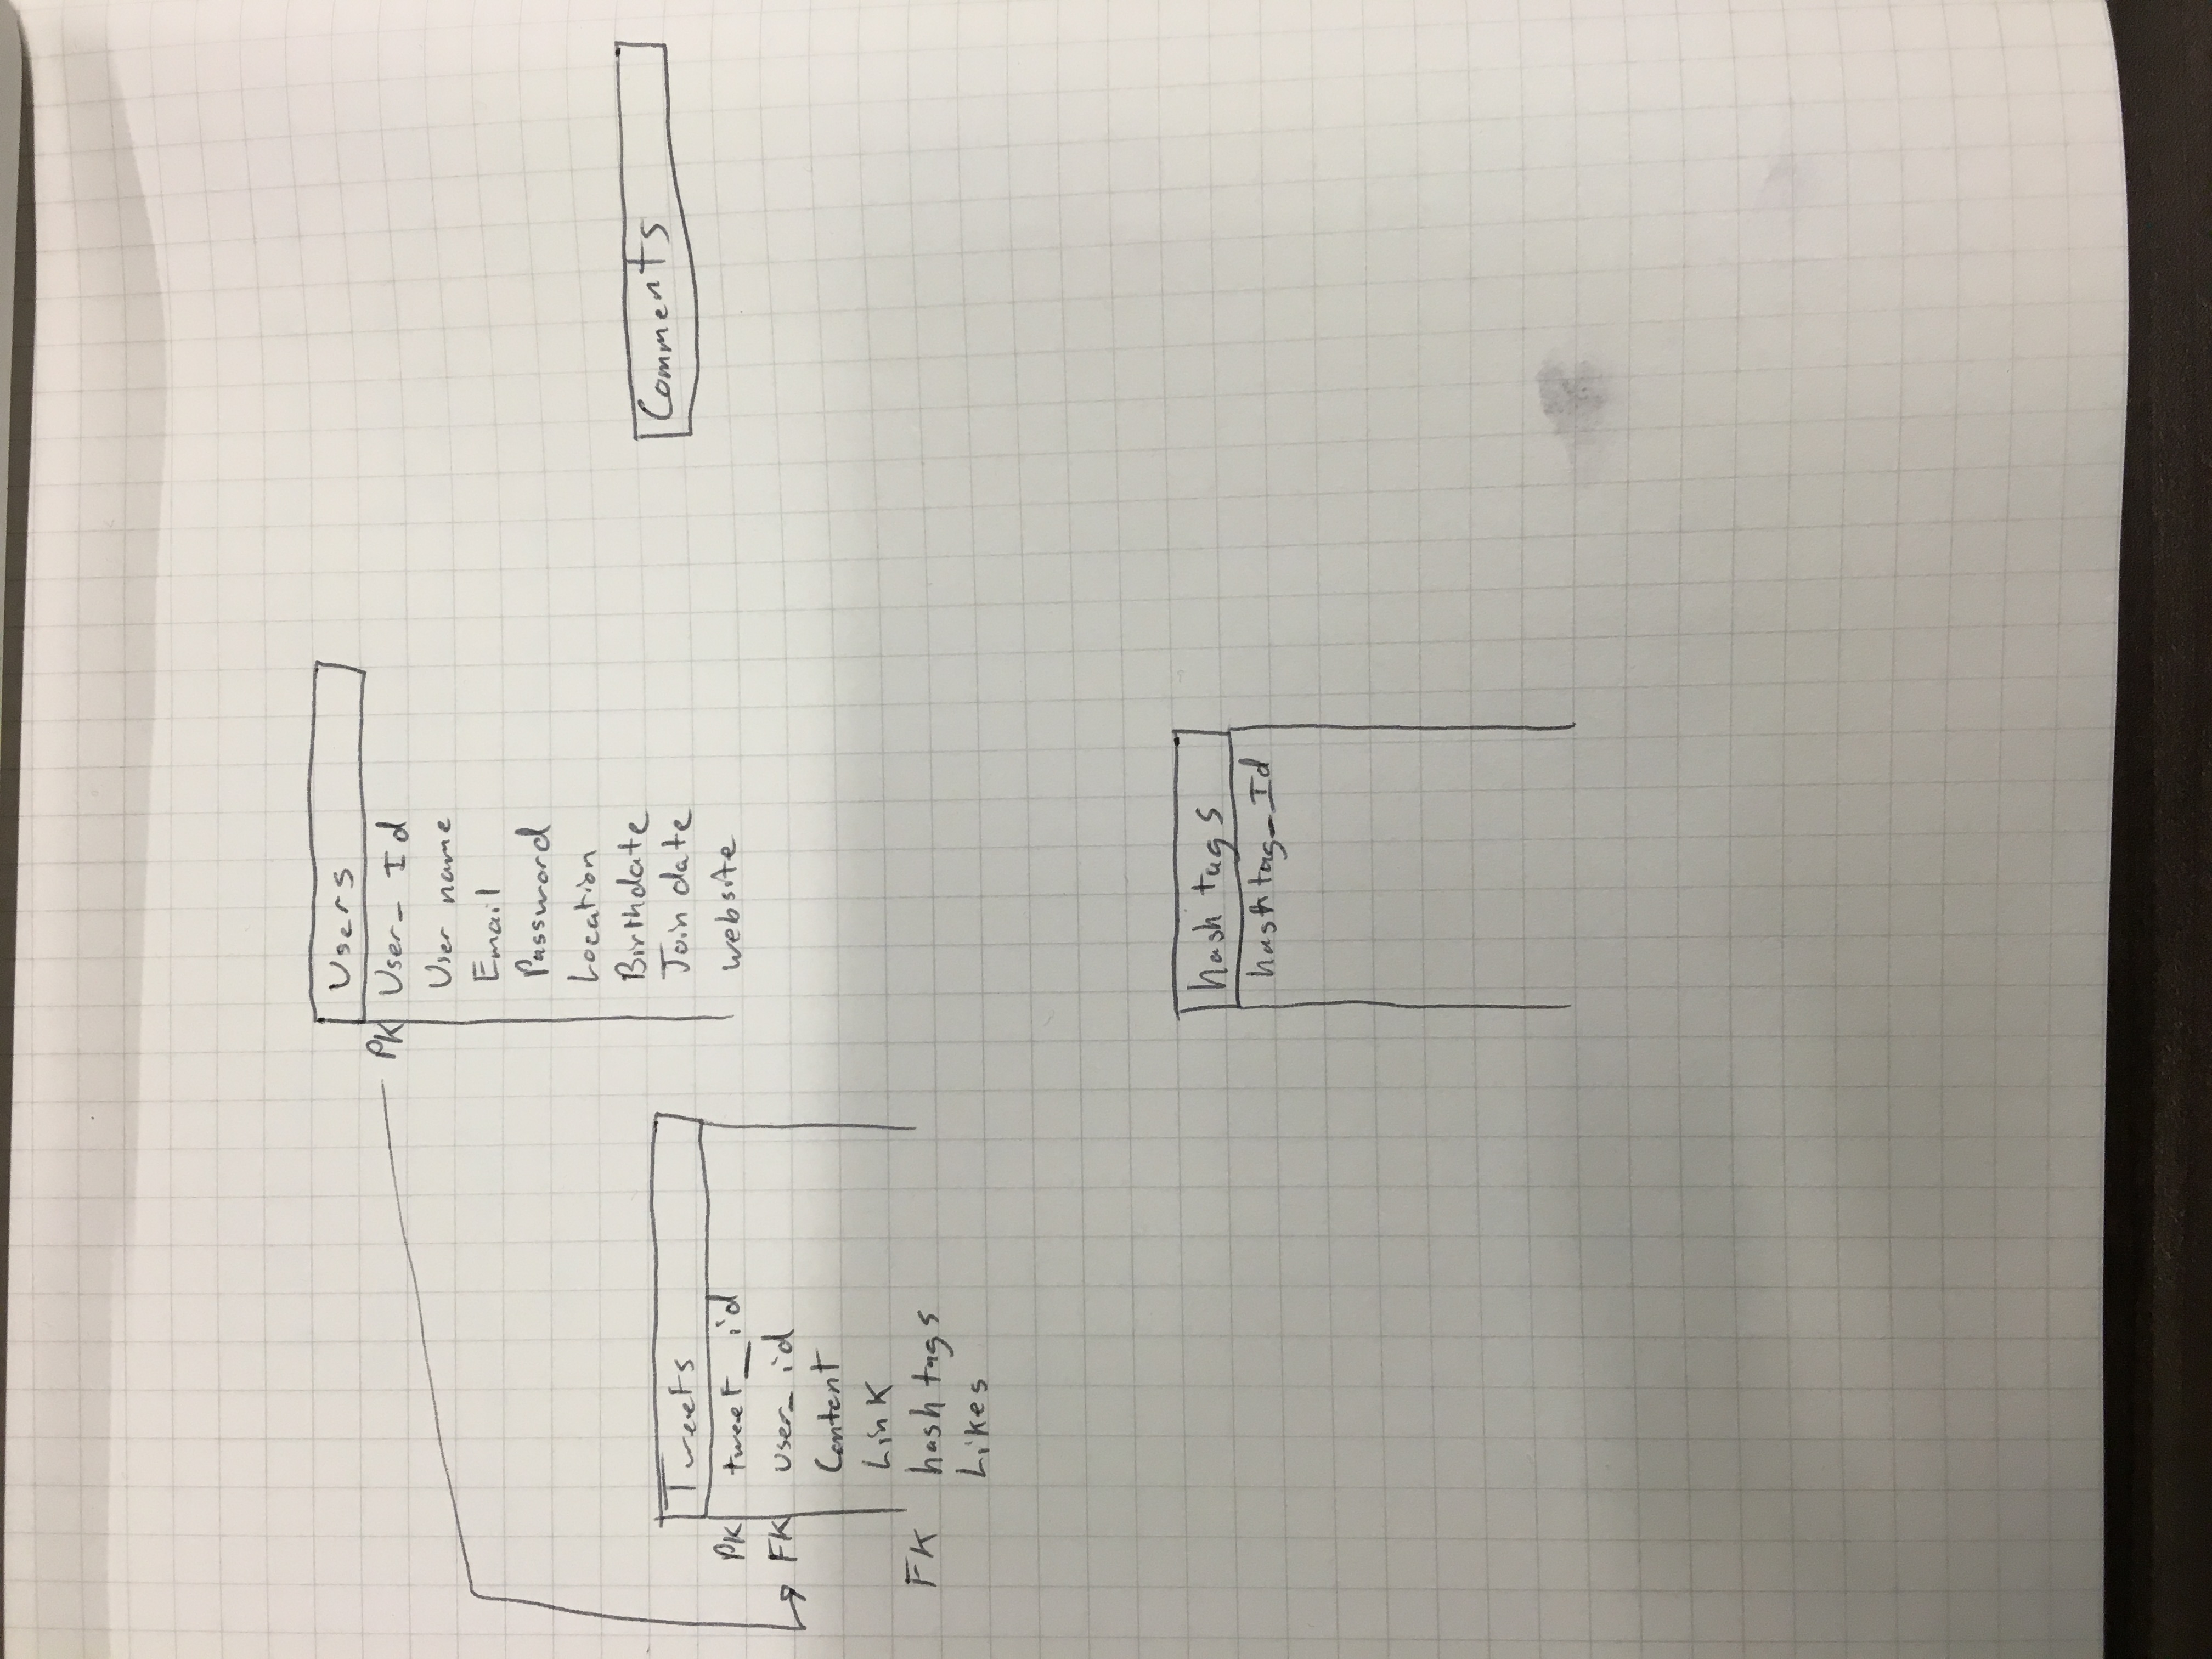 Users
PK User_Id
User name
Email
Password
Location
Birthdate
Join date
website
Tweets
PK tweet_id
FK user_id
Content
Link
FK hash tags
Likes
Comments
hash tags
hashtag_Id